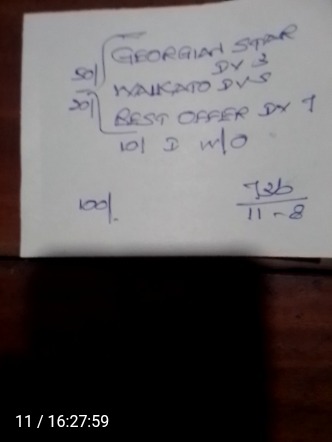 GEORGIAN STAR
DV 3
50/ WAIKATO DV 5
20/ BEST OFFER DV 7
10/ D W/O
100/.
11-8
11 / 16:27:59